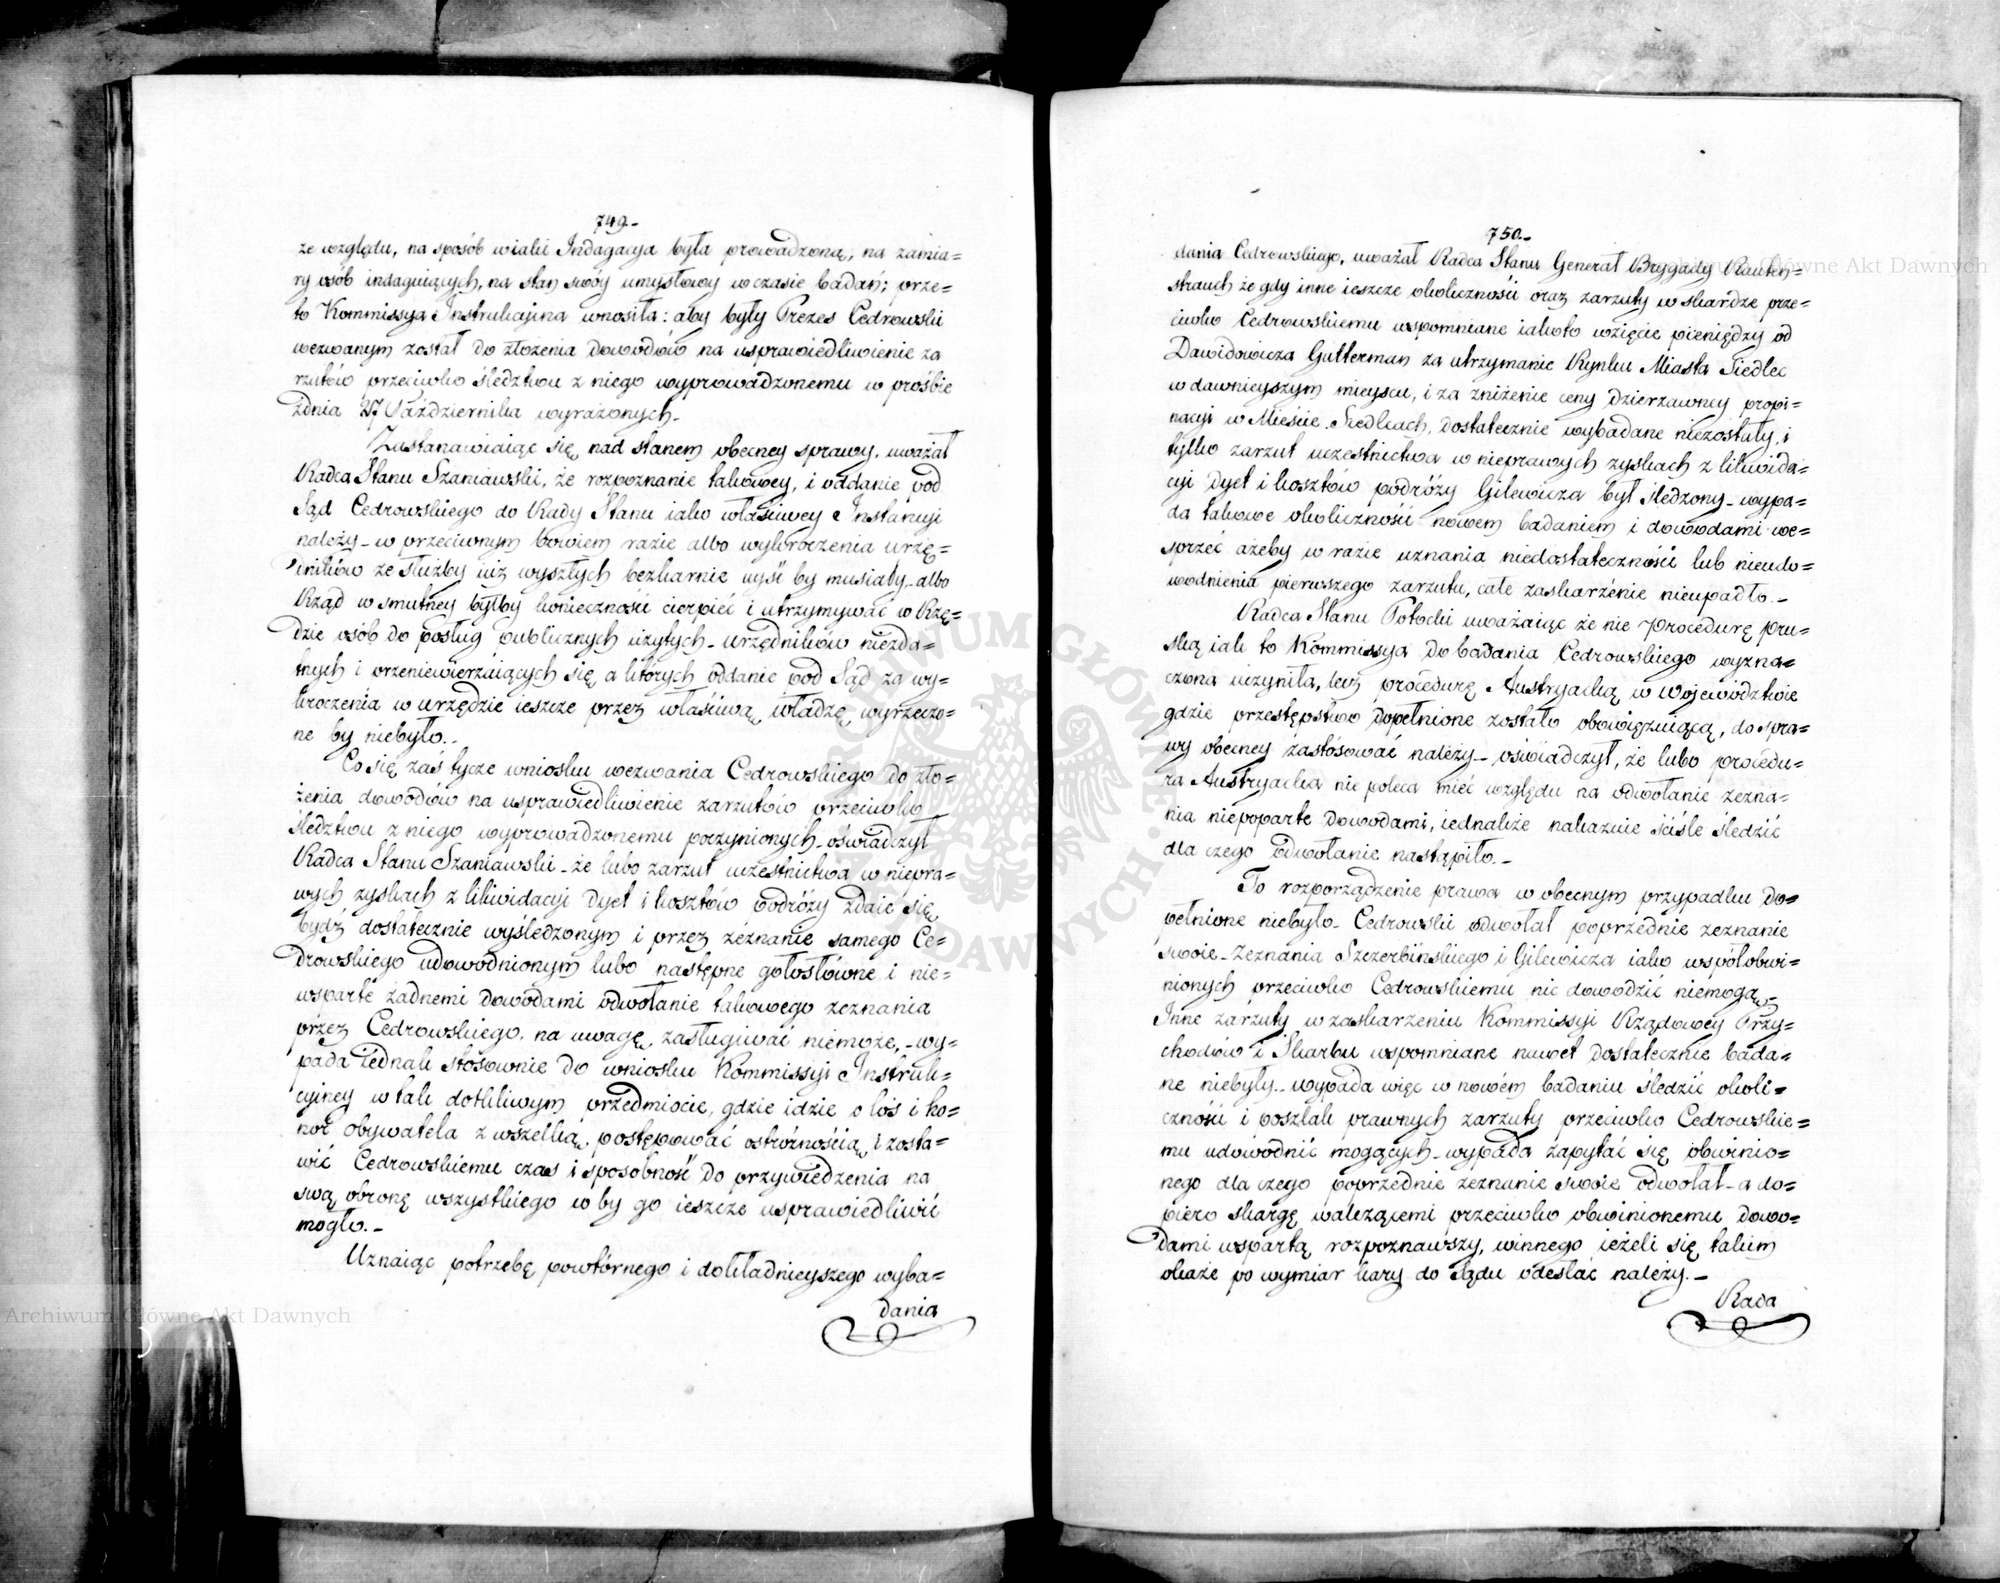 749.
ze względu, na sposób w iaki Indagacya była prowadzoną, na zamia=
ry osób indaguiących, na stan swóy umysłowy w czasie badań; prze=
to Kommissya Instrukcyina wnosiła: aby były Prezes Cedrowski
wezwanym został do złożenia dowodów na usprawiedliwienie za
rzutów przeciwko śledztwu z niego wyprowadzonemu w prośbie
zdnia 27 Października wyrażonych.
Zastanawiaiąc się nad stanem obecney sprawy, uważał
Radca Stanu Szaniawski, że rozpoznanie takowey, i oddanie pod
Sąd Cedrowskiego do Rady Stanu iako właściwey Instancyi
należy_ w przeciwnym bowiem razie albo wykroczenia urzę=
dników ze służby iuż wyszłych bezkarnie uyść by musiały_ albo
Rząd w smutney byłby konieczności cierpieć i utrzymywać w Rzę=
dzie osób do posług publicznych użytych_ urzędników niezda=
tnych i przeniewierzaiących się, a których oddanie pod Sąd za wy=
kroczenia w urzędzie ieszcze przez właściwą władzę wyrzeczo=
ne by niebyło._
Co się zaś tycze wniosku wezwania Cedrowskiego do zło=
żenia dowodów na usprawiedliwienie zarzutów przeciwko
śledztwu z niego wyprowadzonemu poczynionych_ oświadczył
Radca Stanu Szaniawski_ że lubo zarzut uczestnictwa w niepra=
wych zyskach z likwidacyi dyet i kosztów podróży zdaie się
bydź dostatecznie wyśledzonym i przez zeznanie samego Ce=
drowskiego udowodnionym lubo następne gołosłówne i nie=
wsparte żadnemi dowodami odwołanie takowego zeznania
przez Cedrowskiego, na uwagę zasługiwać niemoże,_ wy=
pada iednak stosownie do wniosku Kommissyi Instruk=
cyiney w tak dotkliwym przedmiocie, gdzie idzie o los i ho=
nor obywatela z wszelką postępować ostróżnością i zosta=
wić Cedrowskiemu czas i sposobność do przywiedzenia na
swą obronę wszystkiego coby go ieszcze usprawiedliwić
mogło._
Uznaiąc potrzebę powtórnego i dokładnieyszego wyba=
dania
750.
dania Cedrowskiego, uważał Radca Stanu Generał Brygady Rauten=
strauch że gdy inne ieszcze okoliczności oraz zarzuty w skardze prze=
ciwko Cedrowskiemu wspomniane iakoto wzięcie pieniędzy od
Dawidowicza Gutterman za utrzymanie Rynku Miasta Siedlec
w dawnieyszym mieyscu, i za zniżenie ceny dzierzawney propi=
nacyi w Mieście Siedlcach, dostatecznie wybadane niezostały, i
tylko zarzut uczestnictwa w nieprawych zyskach z likwida=
cyi dyet i kosztów podróży Gilewicza był śledzony_ wypa=
da takowe okoliczności nowem badaniem i dowodami we=
sprzeć ażeby w razie uznania niedostateczności lub nieudo=
wodnienia pierwszego zarzutu, całe zaskarżenie nieupadło._
Radca Stanu Potocki uważaiąc że nie Procedurę Pru=
ską iak to Kommissya do badania Cedrowskiego wyzna=
czona uczyniła, lecz procedurę Austryacką w Wojewodztwie
gdzie przestępstwo dopełnione zostało obowięzuiącą, do spra=
wy obecney zastósować należy_ oświadczył, że lubo procedu=
ra Austryacka nie poleca mieć względu na odwołanie zezna=
nia niepoparte dowodami, iednakże nakazuie ściśle śledzić
dla czego odwołanie nastąpiło._
To rozporządzenie prawa w obecnym przypadku do=
pełnione niebyło_ Cedrowski odwołał poprzednie zeznanie
swoie_ Zeznania Szczerbińskiego i Gilewicza iako współobwi=
nionych przeciwko Cedrowskiemu nic dowodzić niemogą_
Inne zarzuty w zaskarzeniu Kommissyi Rządowey Przy=
chodów i Skarbu wspomniane nawet dostatecznie bada=
ne niebyły_ wypada więc w nowém badaniu śledzić okoli=
czności i poszlak prawnych zarzuty przeciwko Cedrowskie=
mu udowodnić mogących_ wypada zapytać się obwinio=
nego dla czego poprzednie zeznanie swoie odwołał_ a do=
piero skargę walczącemi przeciwko obwinionemu dowo=
dami wspartą rozpoznawszy, winnego ieżeli się takim
okaże po wymiar kary do Sądu odesłać należy._
Rada
Archiwum Główne Akt Dawnych
Archiwum Główne Akt Dawnych
ARCHIWUM GŁÓWNE AKT DAWNYCH